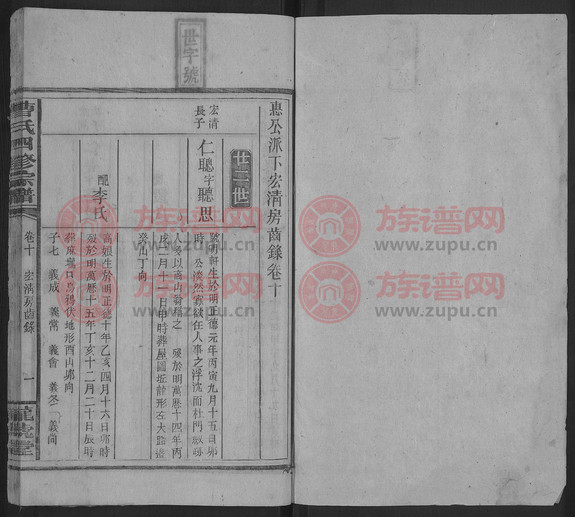 世字號
惠公派下宏清房齒錄卷十
廿二世
宏清
長子
仁聰字聰思
號南軒生於明正德元年丙寅九月十五日卯
時 公淡然寡欲任人事之浮沈而杜門
人 以南山翁稱之 歿於明萬曆十四年丙
戌二月十一日甲時葬屋 形左大路邊
癸山丁向
配李氏
高娘生於明正德十年乙亥四月十六日卯時
歿於明萬曆十五年丁亥十二月二十日辰時
葬麻 口烏鴉伏地形酉山卯向
子七 義成 義常 義會 義冬 義尚
曹氏四修宗譜
卷十 宏清房齒錄
一
族谱网
zupu.cn
族谱网
zupu.cn
族谱网
zupu.cn
族谱网
zupu.cn